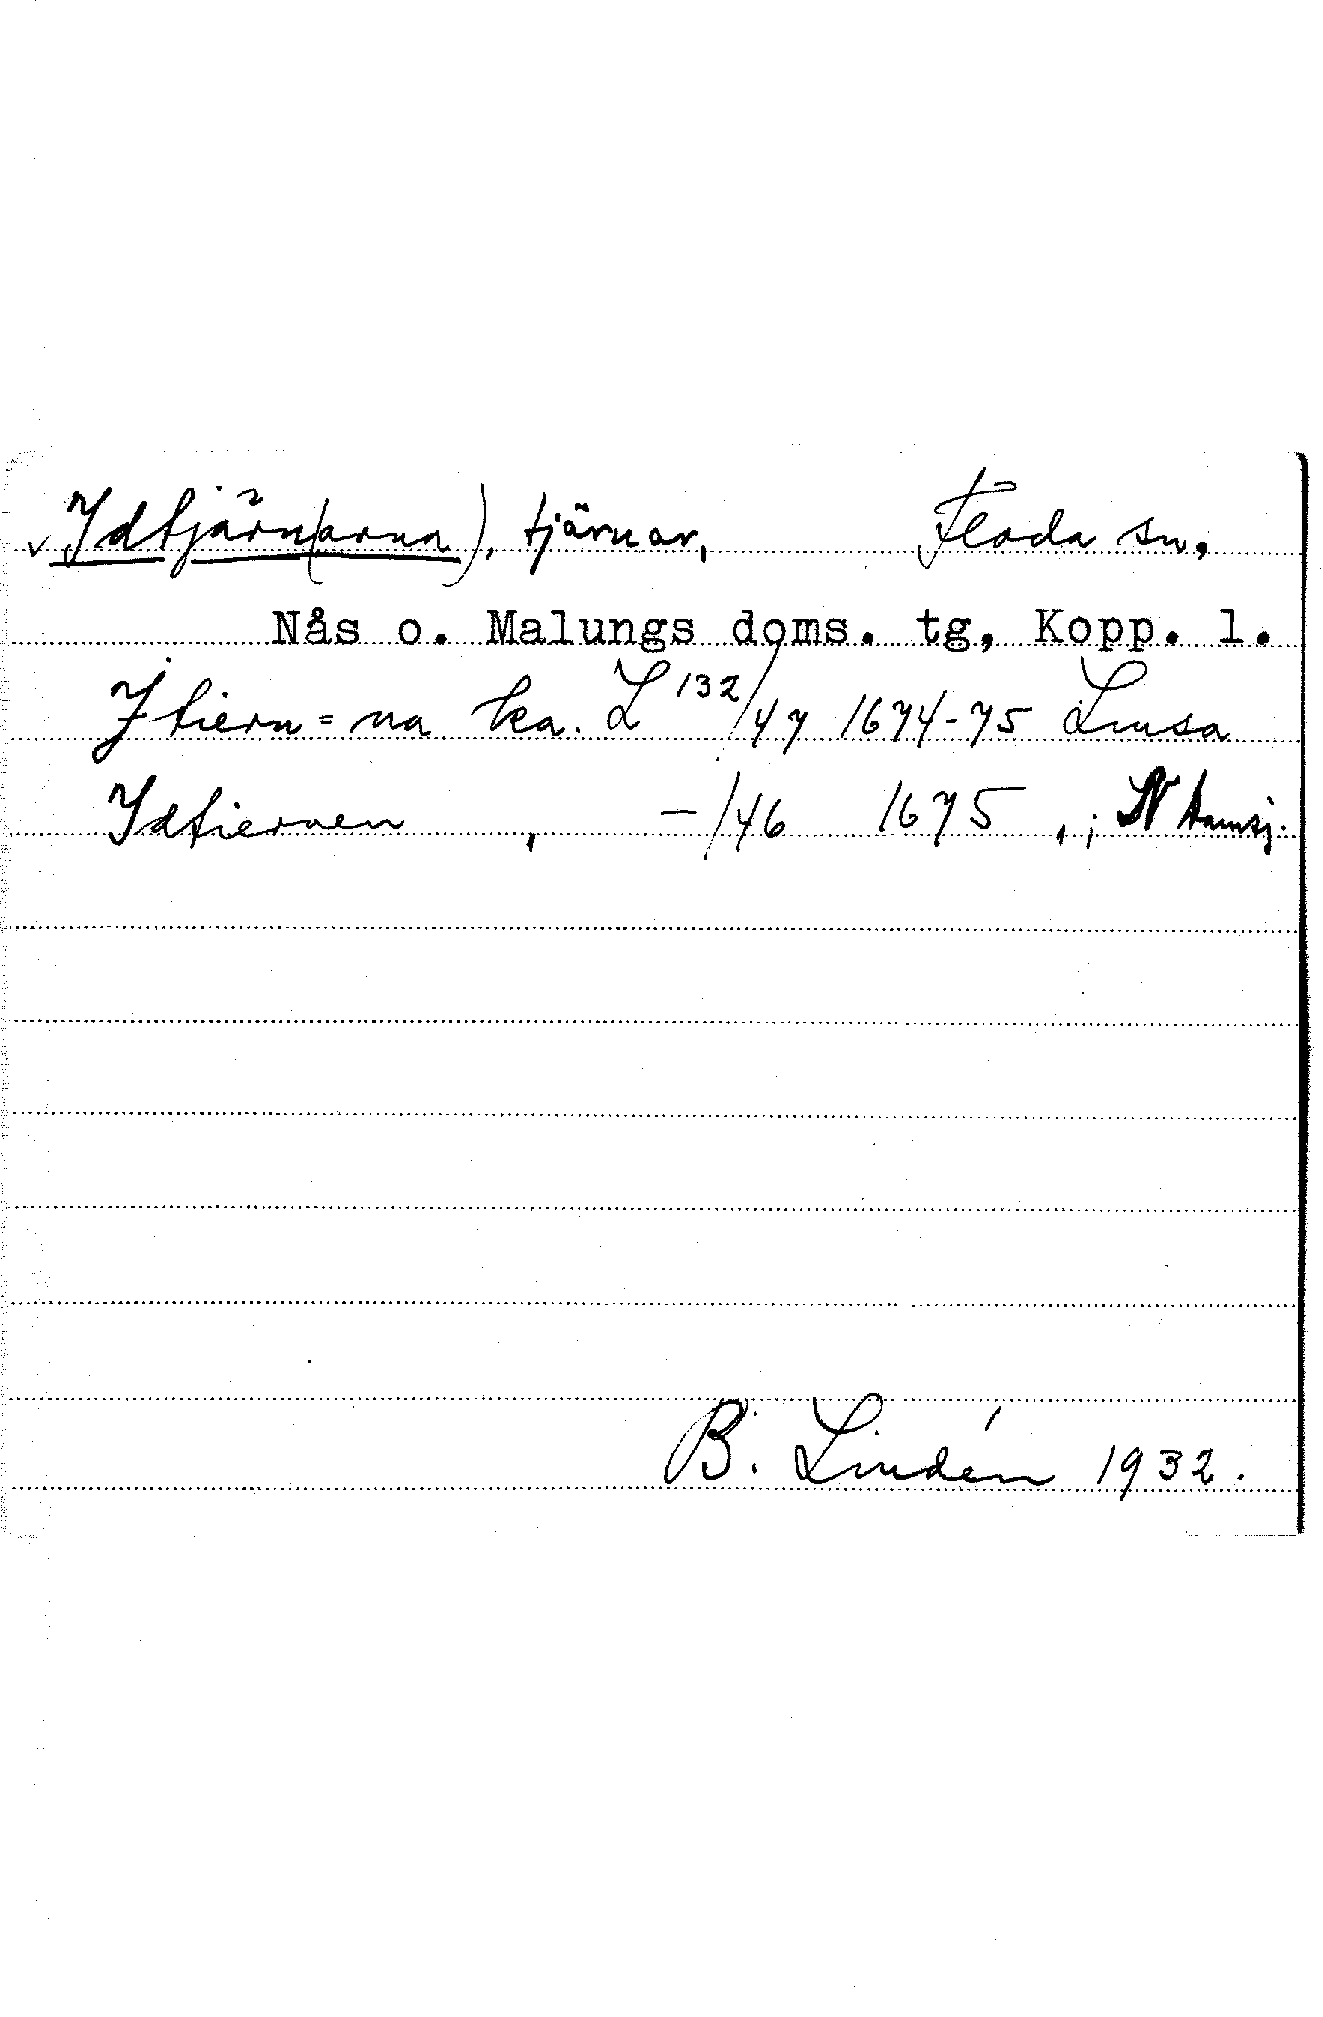 v Idtjärn(arna), tjärnar, Floda sn.
Nås o. Malungs doms. tg, Kopp. l.
Jtiern=na ka. L 132/47 1674-75 Linsa
Idtiernen , -/46 1675 , ;
B. Lindén 1932.